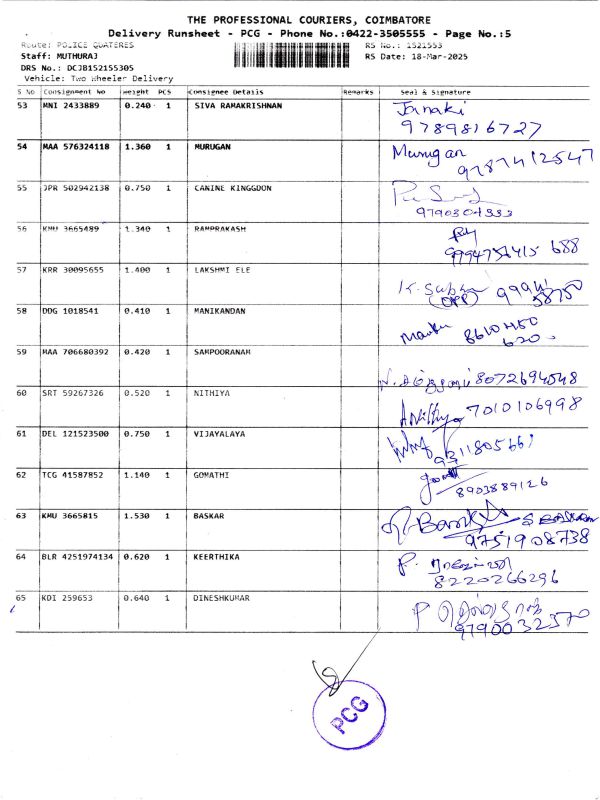 THE PROFESSIONAL COURIERS, COIMBATORE
Delivery Runsheet - PCG - Phone No.:0422-3505555 - Page No.:5
Route: POLICE QUATERES RS No.: 1521553
Staff: MUTHURAJ RS Date: 18-Mar-2025
DRS No.: DCJB152155305
Vehicle: Two Wheeler Delivery
S No Consignment No Weight PCS Consignee Details Remarks Seal & Signature
53 MNI 2433889 0.240 1 SIVA RAMAKRISHNAN Janaki
9789816727
54 MAA 576324118 1.360 1 MURUGAN Murugan
9787412547
55 JPR 502942138 0.750 1 CANINE KINGGDON
9790304333
56 KMU 3665489 1.340 1 RAMPRAKASH
57 KRR 30095655 1.400 1 LAKSHMI ELE K. Suba
(OPP)
58 DDG 1018541 0.410 1 MANIKANDAN
59 MAA 706680392 0.420 1 SAMPOORANAM
8072694548
60 SRT 59267326 0.520 1 NITHIYA 7010106998
61 DEL 121523500 0.750 1 VIJAYALAYA
62 TCG 41587852 1.140 1 GOMATHI
8903889126
63 KMU 3665815 1.530 1 BASKAR S BASKAR
9751908738
64 BLR 4251974134 0.620 1 KEERTHIKA
8220266296
65 KDI 259653 0.640 1 DINESHKUMAR
9790032370
PCG